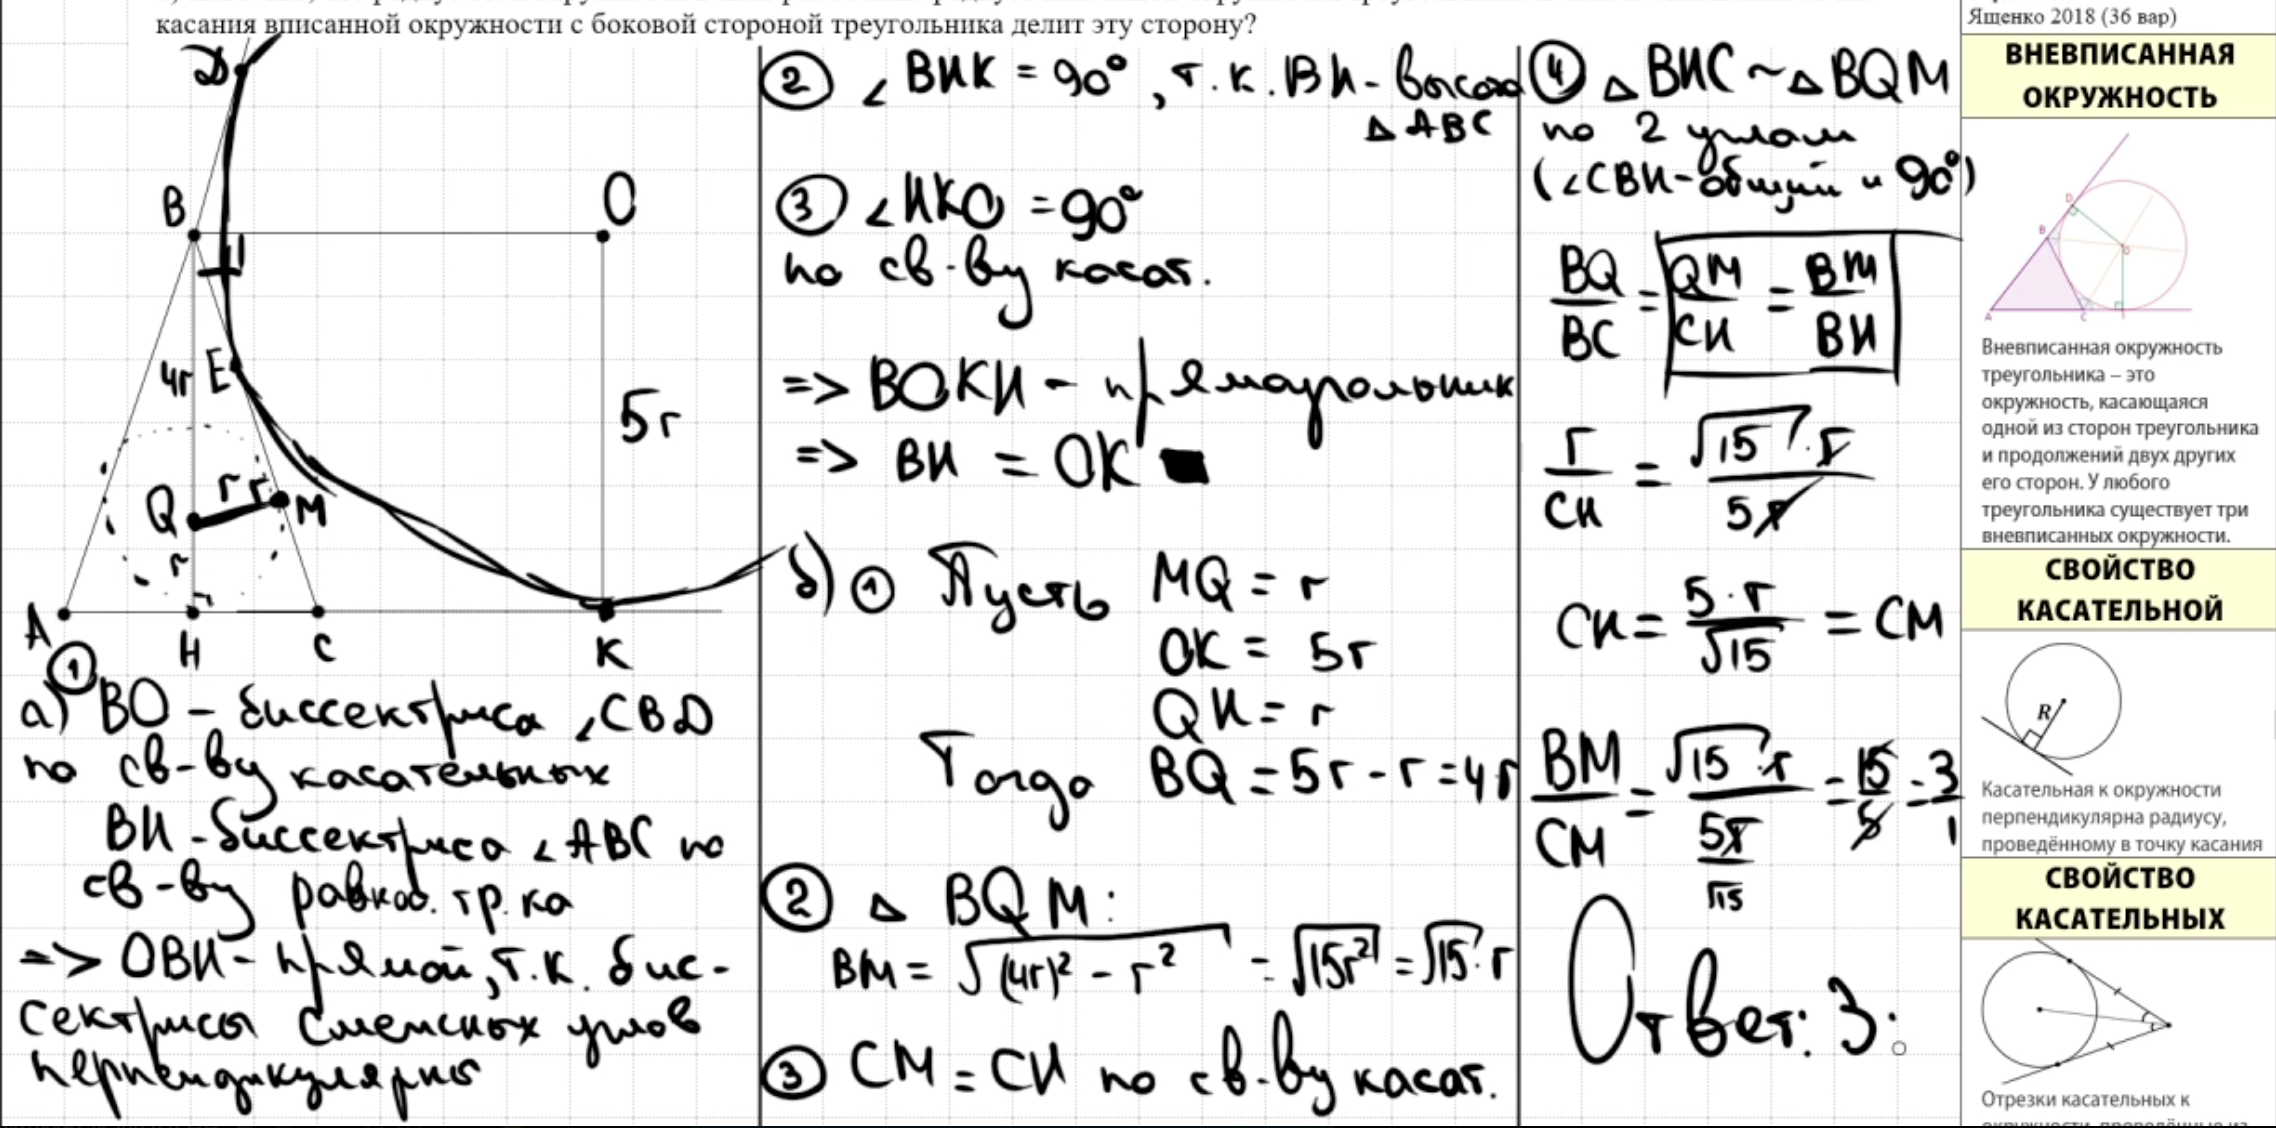 касания вписанной окружности с боковой стороной треугольника делит эту сторону?
D
B
O
4r
E
5r
Q
r
r
M
r
A
H
C
K
①
а) BO - биссектриса ∠CBD
по св-ву касательных
BH - биссектриса ∠ABC по
св-ву равноб. тр.ка
=> OBH - прямой, т.к. бис-
сектрисы смежных углов
перпендикулярны
② ∠BHK = 90°, т.к. BH - высота
△ABC
③ ∠HKO = 90°
по св-ву касат.
=> BOKH - прямоугольник
=> BH = OK
б) ① Пусть MQ = r
OK = 5r
QH = r
Тогда BQ = 5r - r = 4r
② △ BQM:
BM = √((4r)² - r²) = √(15r²) = √15 · r
③ CM = CH по св-ву касат.
④ △BHC ~ △BQM
по 2 углам
(∠CBH - общий и 90°)
BQ/BC = QM/CH = BM/BH
r/CH = √15 · r/5r
CH = 5·r/√15 = CM
BM/CM = √15 · r/(5r/√15) = 15/5 = 3/1
Ответ: 3:
Ященко 2018 (36 вар)
ВНЕВПИСАННАЯ
ОКРУЖНОСТЬ
D
B
O
A
C
Вневписанная окружность
треугольника – это
окружность, касающаяся
одной из сторон треугольника
и продолжений двух других
его сторон. У любого
треугольника существует три
вневписанных окружности.
СВОЙСТВО
КАСАТЕЛЬНОЙ
R
Касательная к окружности
перпендикулярна радиусу,
проведённому в точку касания
СВОЙСТВО
КАСАТЕЛЬНЫХ
Отрезки касательных к